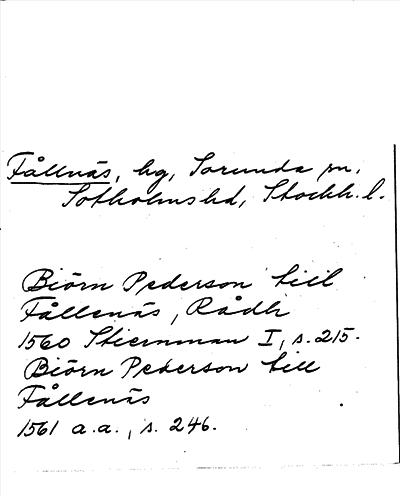 Fållnäs, hg, Sorunda sn,
Sotholms hd, Stockh. l.
Biörn Pederson till
Fållenäs, Rådh
1560 Stiernman I, s. 215.
Biörn Pederson till
Fållenäs
1561 a.a., s. 246.